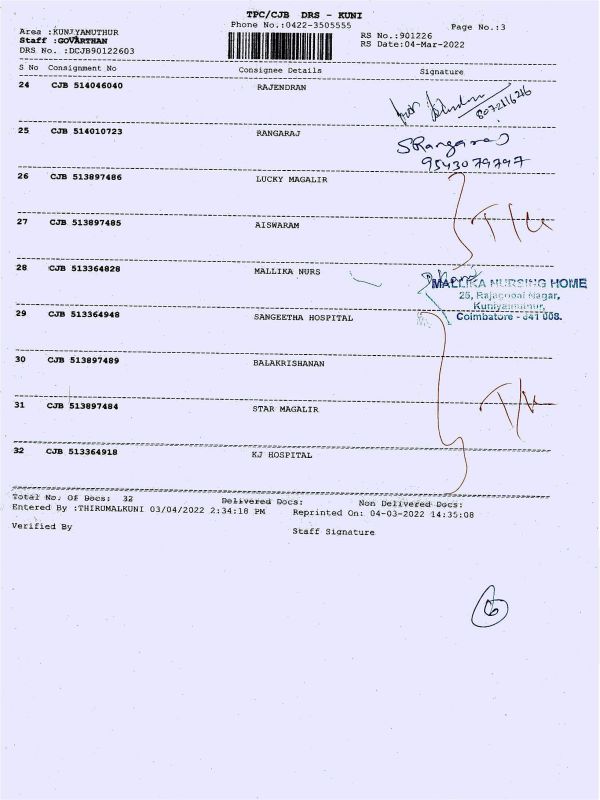 TPC/CJB DRS - KUNI
Phone No.:0422-3505555
Page No.:3
Area :KUNIYAMUTHUR
Staff :GOVARTHAN
DRS No. :DCJB90122603
RS No.:901226
RS Date:04-Mar-2022
S No Consignment No Consignee Details Signature
24 CJB 514046040 RAJENDRAN
8072116216
25 CJB 514010723 RANGARAJ
S Rangaraj
9543079797
26 CJB 513897486 LUCKY MAGALIR
27 CJB 513897485 AISWARAM
T/U
28 CJB 513364828 MALLIKA NURS
MALLIKA NURSING HOME
25, Rajagopal Nagar,
Kuniyamuthur,
Coimbatore - 641 008.
29 CJB 513364948 SANGEETHA HOSPITAL
30 CJB 513897489 BALAKRISHANAN
31 CJB 513897484 STAR MAGALIR
T/U
32 CJB 513364918 KJ HOSPITAL
Total No. Of Docs: 32 Delivered Docs: Non Delivered Docs:
Entered By :THIRUMALKUNI 03/04/2022 2:34:18 PM Reprinted On: 04-03-2022 14:35:08
Verified By Staff Signature
6